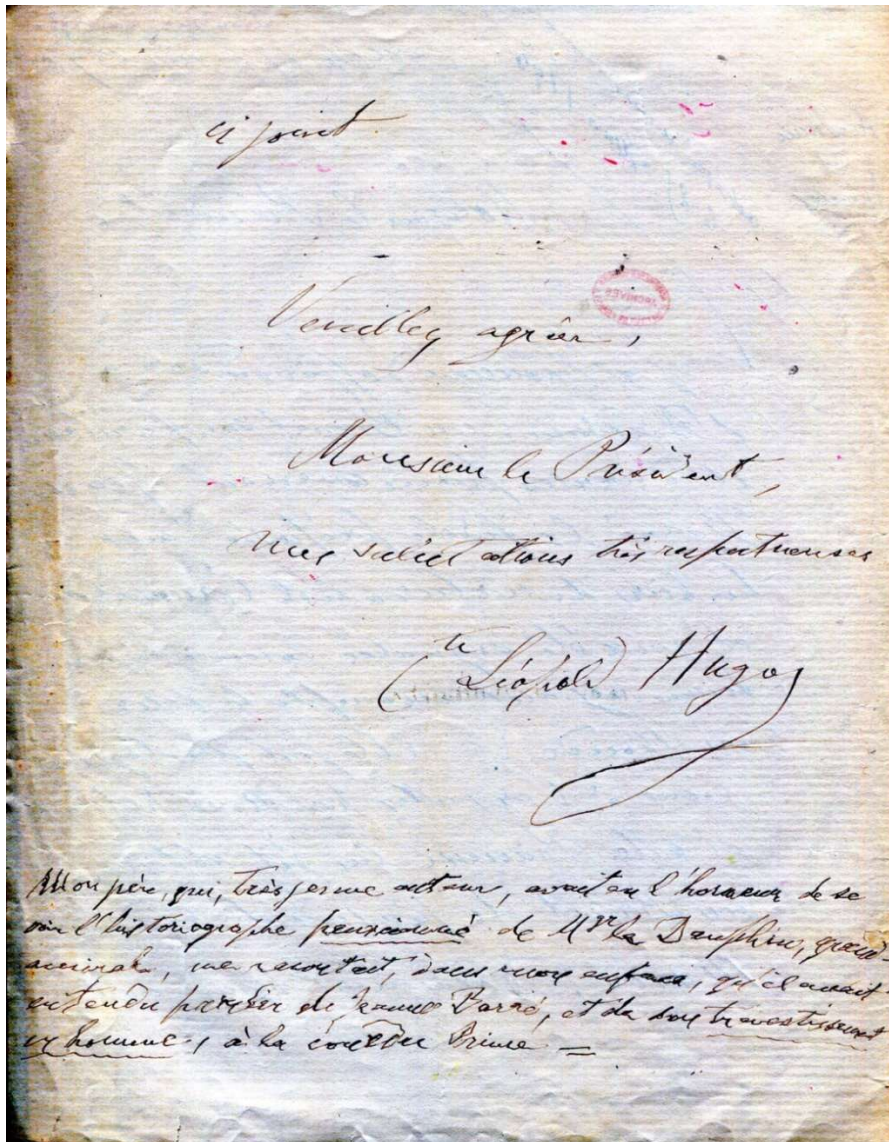 ci joint.
Veuillez agréer,
Monsieur le Président,
mes salutations très respectueuses
Cte Léopold Hugo
Mon père, qui, très jeune auteur, avait eu l'honneur de se
voir l'historiographe pensionné de Mgr le Dauphin, grand
amiral, me racontait, dans mon enfance, qu'il avait
entendu parler de Jeanne Barré, et de son travestissement
en homme, à la cour du Prince =